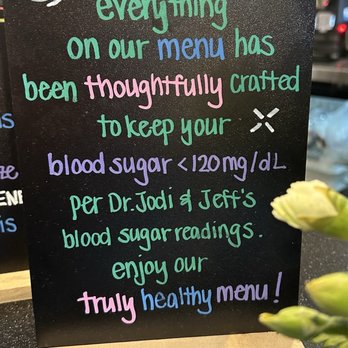 everything
on our menu has
been thoughtfully crafted
to keep your
blood sugar <120mg/dL
per Dr. Jodi & Jeff's
blood sugar readings.
enjoy our
truly healthy menu!